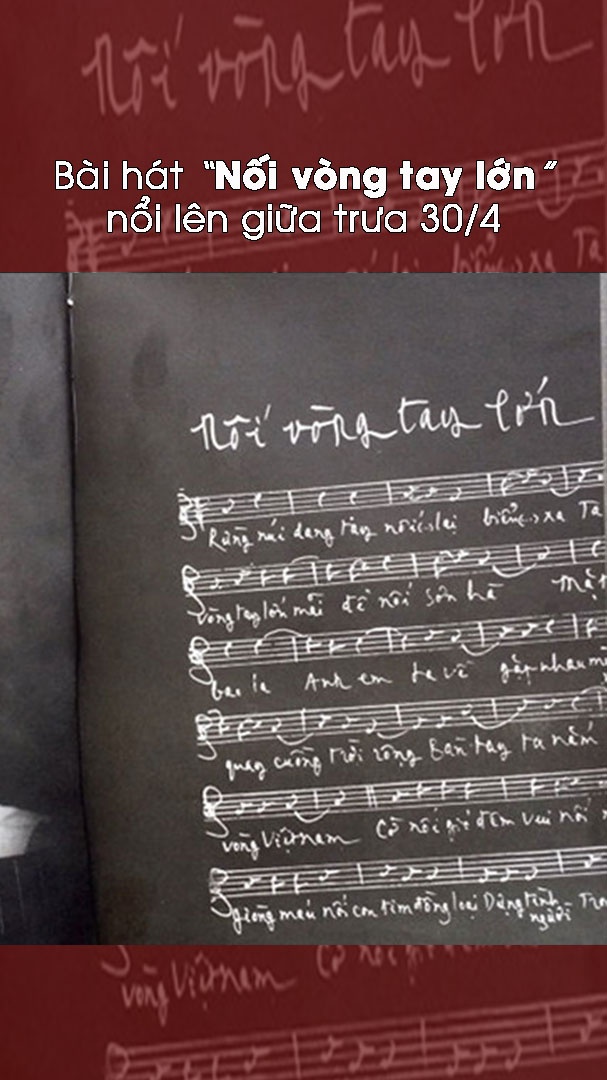 nối vòng tay lớn
Bài hát “Nối vòng tay lớn”
nổi lên giữa trưa 30/4
nối vòng tay lớn
Rừng núi dang tay nối lại biển xa Ta
vòng tay lớn mãi để nối sơn hà Mặt
bao la Anh em ta về gặp nhau
quay cuồng trời rộng Bàn tay ta nắm
vòng Việt nam Cờ nối gió đêm vui nối
giòng máu nối con tim đồng loại Dựng tình người
vòng Việt nam